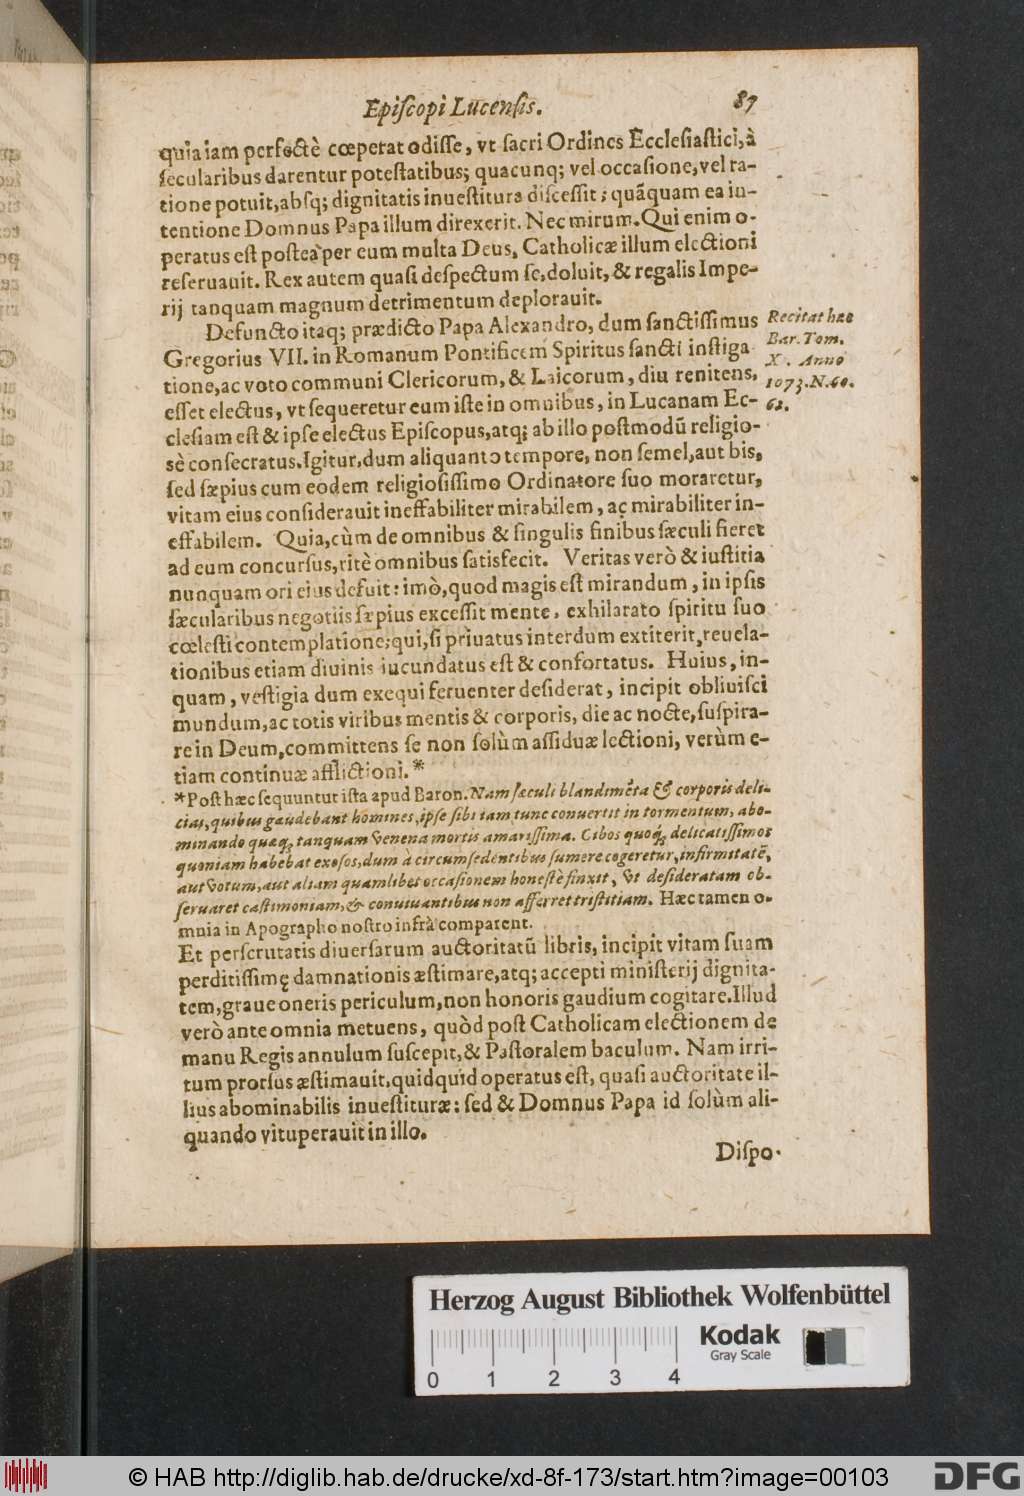 Episcopi Lucensis. 87
quia iam perfectè cœperat odisse, vt sacri Ordines Ecclesiastici, à
secularibus darentur potestatibus; quacunq; vel occasione, vel ra-
tione potuit, absq; dignitatis inuestitura discessit; quãquam ea in-
tentione Domnus Papa illum direxerit. Nec mirum. Qui enim o-
peratus est posteà per eum multa Deus, Catholicæ illum electioni
reseruauit. Rex autem quasi despectum se, doluit, & regalis Impe-
rij tanquam magnum detrimentum deplorauit.
Defuncto itaq; prædicto Papa Alexandro, dum sanctissimus
Gregorius VII. in Romanum Pontificem Spiritus sancti instiga
tione, ac voto communi Clericorum, & Laicorum, diu renitens,
esset electus, vt sequeretur eum iste in omnibus, in Lucanam Ec-
clesiam est & ipse electus Episcopus, atq; ab illo postmodũ religio-
sè consecratus. Igitur, dum aliquanto tempore, non semel, aut bis,
sed sæpius cum eodem religiosissimo Ordinatore suo moraretur,
vitam eius considerauit ineffabiliter mirabilem, ac mirabiliter in-
effabilem. Quia, cùm de omnibus & singulis finibus sæculi fieret
ad eum concursus, ritè omnibus satisfecit. Veritas verò & iustitia
nunquam ori eius defuit: imò, quod magis est mirandum, in ipsis
sæcularibus negotiis sæpius excessit mente, exhilarato spiritu suo
cœlesti contemplatione; qui, si priuatus interdum extiterit, reuela-
tionibus etiam diuinis iucundatus est & confortatus. Huius, in-
quam, vestigia dum exequi feruenter desiderat, incipit obliuisci
mundum, ac totis viribus mentis & corporis, die ac nocte, suspira-
re in Deum, committens se non solùm assiduæ lectioni, verùm e-
tiam continuæ afflictioni.*
*Post hæc sequuntur ista apud Baron. Nam sæculi blandimẽta & corporis deli-
cias, quibus gaudebant homines, ipse sibi iam tunc conuertit in tormentum, abo-
minando quæq; tanquam venena mortis amarissima. Cibos quoq; delicatissimos
quoniam habebat exosos, dum à circumsedentibus sumere cogeretur, infirmitatẽ,
aut votum, aut aliam quamlibet occasionem honestè finxit, vt desideratam ob-
seruaret castimoniam, & conuiuantibus non afferret tristitiam. Hæc tamen o-
mnia in Apographo nostro infrà comparent.
Et perscrutatis diuersarum auctoritatũ libris, incipit vitam suam
perditissimę damnationis æstimare, atq; accepti ministerij dignita-
tem, graue oneris periculum, non honoris gaudium cogitare. Illud
verò ante omnia metuens, quòd post Catholicam electionem de
manu Regis annulum suscepit, & Pastoralem baculum. Nam irri-
tum prorsus æstimauit, quidquid operatus est, quasi auctoritate il-
lius abominabilis inuestituræ: sed & Domnus Papa id solùm ali-
quando vituperauit in illo.
Dispo-
Recitat hæc
Bar. Tom.
XI. Anno
1073. N. 60.
62.
Herzog August Bibliothek Wolfenbüttel
Kodak
Gray Scale
0 1 2 3 4
© HAB http://diglib.hab.de/drucke/xd-8f-173/start.htm?image=00103
DFG